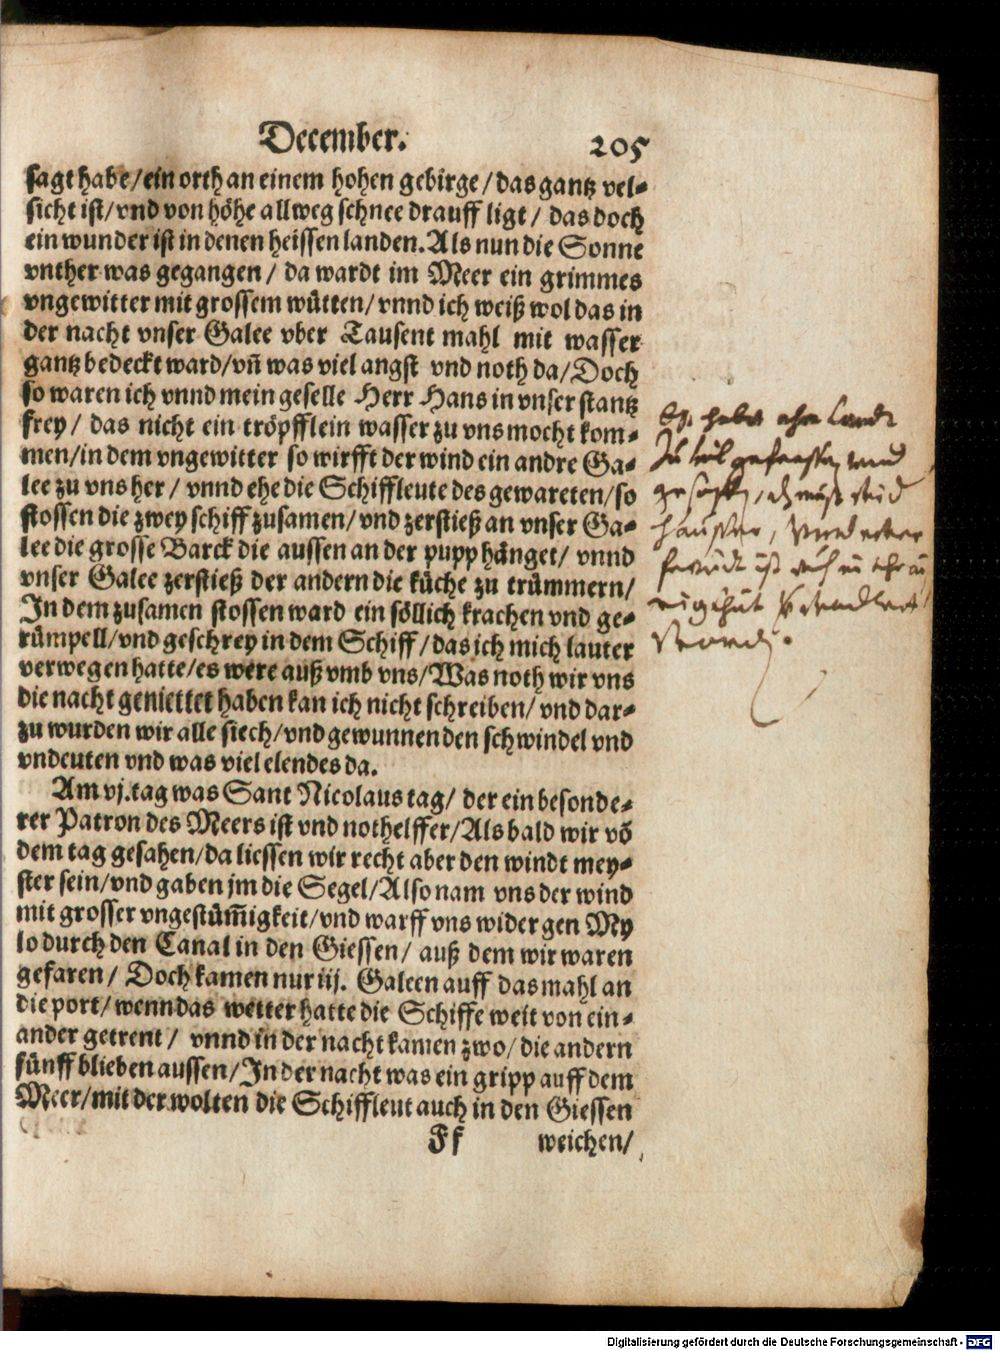 December. 205
sagt habe/ein orth an einem hohen gebirge/das gantz vel-
sicht ist/vnd von höhe allweg schnee drauff ligt/ das doch
ein wunder ist in denen heissen landen. Als nun die Sonne
vnther was gegangen/ da wardt im Meer ein grimmes
vngewitter mit grossem wütten/vnnd ich weiß wol das in
der nacht vnser Galee vber Tausent mahl mit wasser
gantz bedeckt ward/vñ was viel angst vnd noth da/Doch
so waren ich vnnd mein geselle Herr Hans in vnser stantz
frey/ das nicht ein tröpfflein wasser zu vns mocht kom-
men/in dem vngewitter so wirfft der wind ein andre Ga-
lee zu vns her/ vnnd ehe die Schiffleute des gewareten/so
stossen die zwey schiff zusamen/vnd zerstieß an vnser Ga-
lee die grosse Barck die aussen an der pupp hänget/ vnnd
vnser Galee zerstieß der andern die küche zu trümmern/
In dem zusamen stossen ward ein söllich krachen vnd ge-
rümpell/vnd geschrey in dem Schiff/das ich mich lauter
verwegen hatte/es were auß vmb vns/Was noth wir vns
die nacht geniettet haben kan ich nicht schreiben/ vnd dar-
zu wurden wir alle siech/vnd gewunnen den schwindel vnd
vndeuten vnd was viel elendes da.
Am vj.tag was Sant Nicolaus tag/ der ein besonde-
rer Patron des Meers ist vnd nothelffer/Als bald wir võ
dem tag gesahen/da liessen wir recht aber den windt mey-
ster sein/vnd gaben jm die Segel/Also nam vns der wind
mit grosser vngestüm̃igkeit/vnd warff vns wider gen My
lo durch den Canal in den Giessen/ auß dem wir waren
gefaren/ Doch kamen nur iij. Galeen auff das mahl an
die port/wenn das wetter hatte die Schiffe weit von ein-
ander getrent/ vnnd in der nacht kamen zwo/die andern
fünff blieben aussen/In der nacht was ein gripp auff dem
Meer/mit der wolten die Schiffleut auch in den Giessen
Ff weichen/
Digitalisierung gefördert durch die Deutsche Forschungsgemeinschaft - DFG